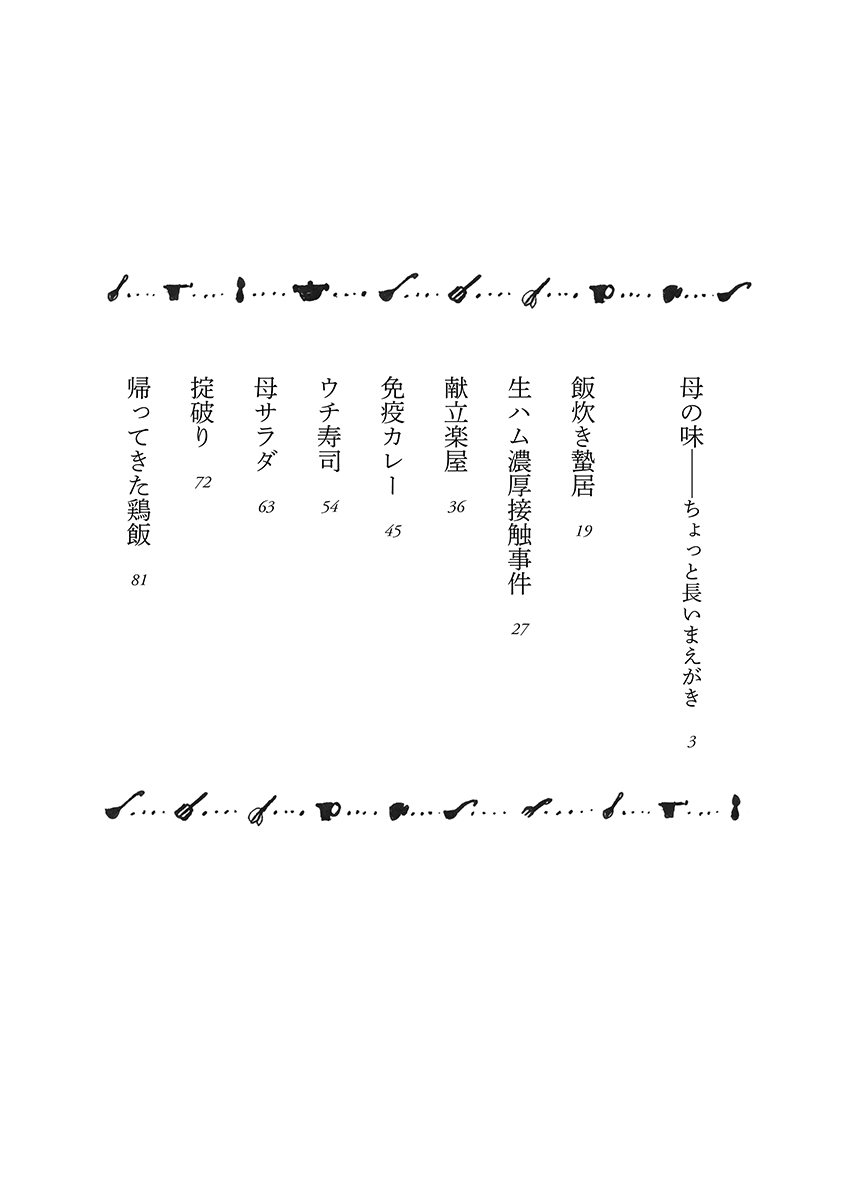 母の味――ちょっと長いまえがき 3
飯炊き蟄居 19
生ハム濃厚接触事件 27
献立楽屋 36
免疫カレー 45
ウチ寿司 54
母サラダ 63
掟破り 72
帰ってきた鶏飯 81